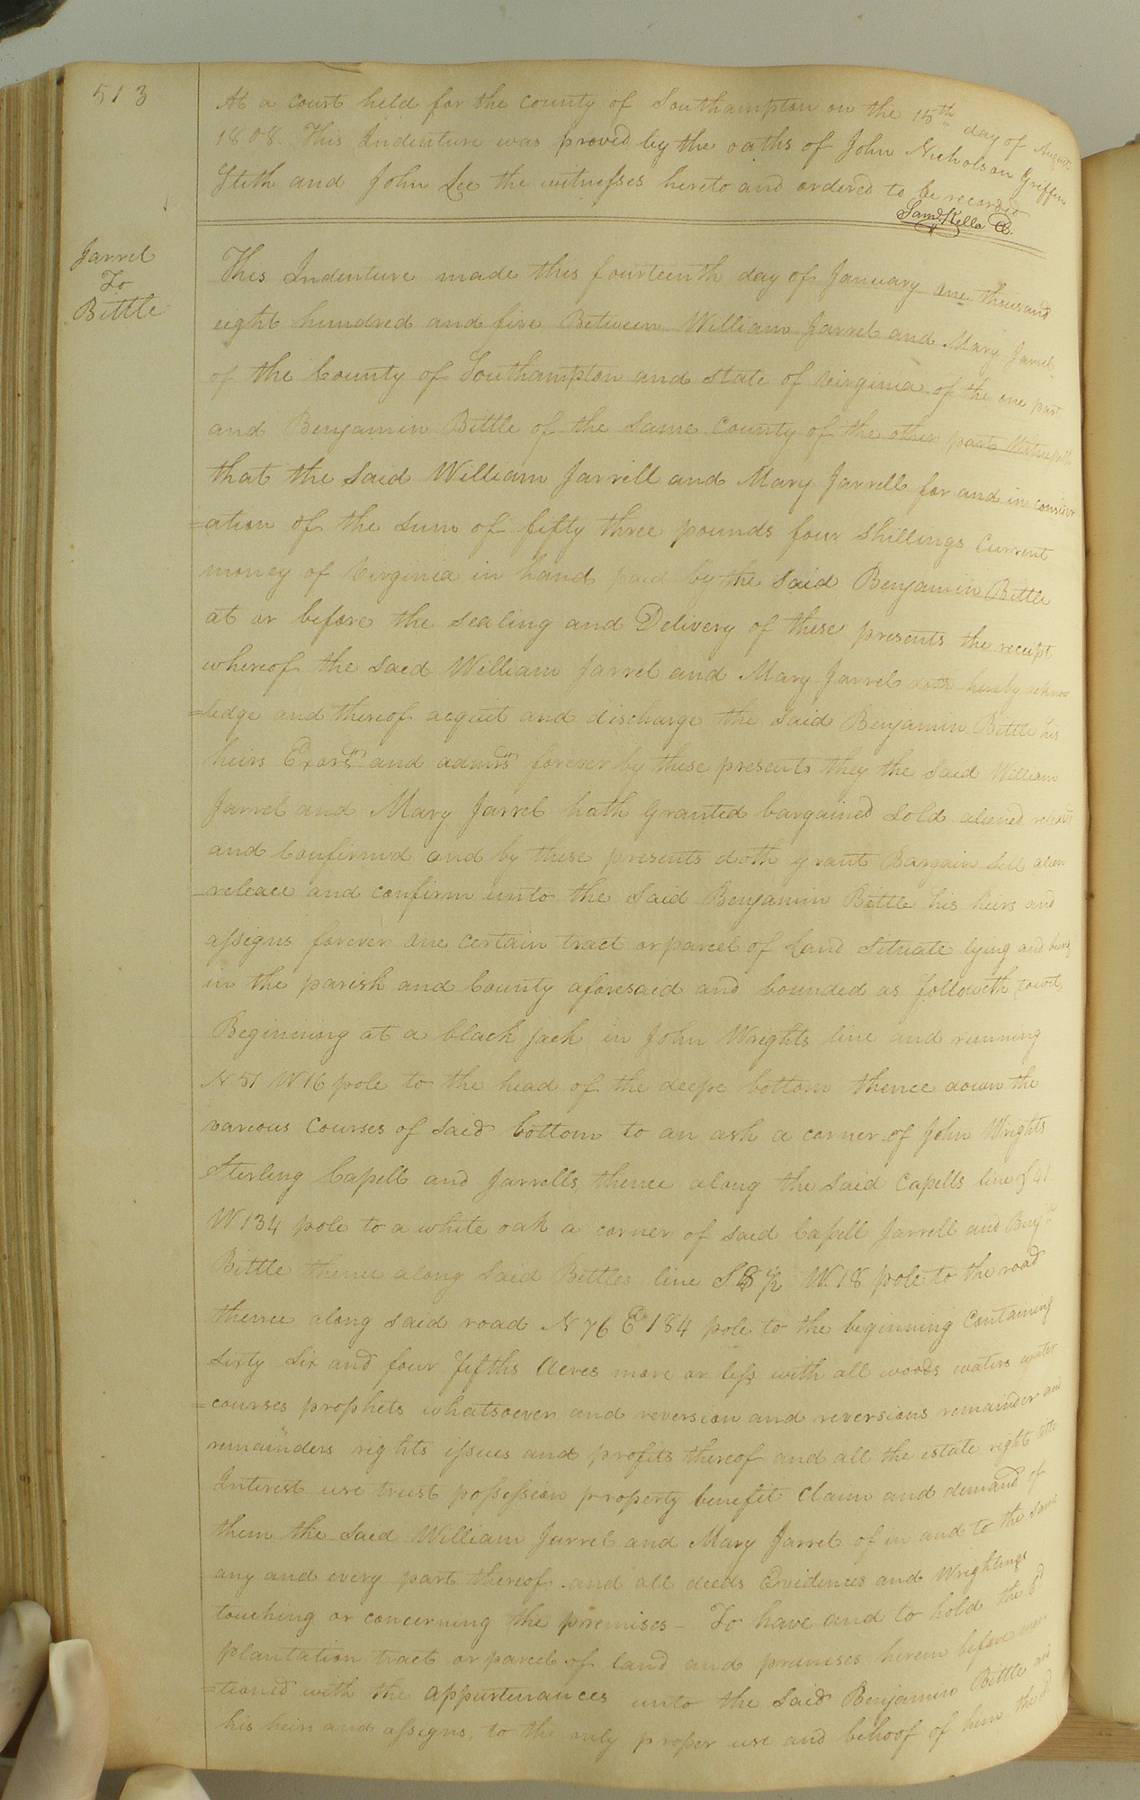 513
At a court held for the county of Southampton on the 15th day of August
1808 This Indenture was proved by the oaths of John Nicholson Griffin
Stith and John Lee the witnesses hereto and ordered to be recorded
Saml. Kello C.
Jarrel
To
Bittle
This Indenture made this fourteenth day of January one thousand
eight hundred and five Between William Jarrel and Mary Jarrel
of the County of Southampton and State of Virginia of the one part
and Benjamin Bittle of the same County of the other part Witnesseth
that the said William Jarrell and Mary Jarrell for and in consider
=ation of the sum of fifty three pounds four shillings Current
money of Virginia in hand paid by the said Benjamin Bittle
at or before the sealing and Delivery of these presents the receipt
whereof the said William Jarrel and Mary Jarrel doth hereby acknow
=ledge and thereof acquit and discharge the said Benjamin Bittle his
heirs Exors and admrs forever by these presents they the said William
Jarrel and Mary Jarrel hath Granted bargained Sold aliened released
and Confirmed and by these presents doth grant Bargain Sell alien
-release and confirm unto the Said Benjamin Bittle his heirs and
assigns forever one certain tract or parcel of Land Situate lying and being
in the parish and County aforesaid and bounded as followeth towit,
Beginning at a black jack in John Wrights line and running
N 51 W 16 pole to the head of the deepe bottom thence down the
various Courses of said bottom to an ash a corner of John Wrights
Sterling Capell and Jarrells, thence along the said Capells line S 41
W 134 pole to a white oak a corner of said Capell Jarrell and Benjn
Bittle thence along said Bittles line S 8 1/2 W. 18 pole to the road
thence along said road N 76 E 184 pole to the beginning Containing
Sixty Six and four fifths Acres more or less with all woods waters water
=courses prophets whatsoever and reversion and reversions remainder and
remainders rights issues and profits thereof and all the estate right title
Interest use trust possession property benefit Claim and demand of
them the said William Jarrel and Mary Jarrel of in and to the same
any and every part thereof and all deeds Evidences and Wrightings
touching or concerning the premises - To have and to hold the sd
plantation tract or parcel of land and premises herein before men
=tioned with the appurtenances unto the said Benjamin Bittle and
his heirs and assigns, to the only proper use and behoof of him the sd